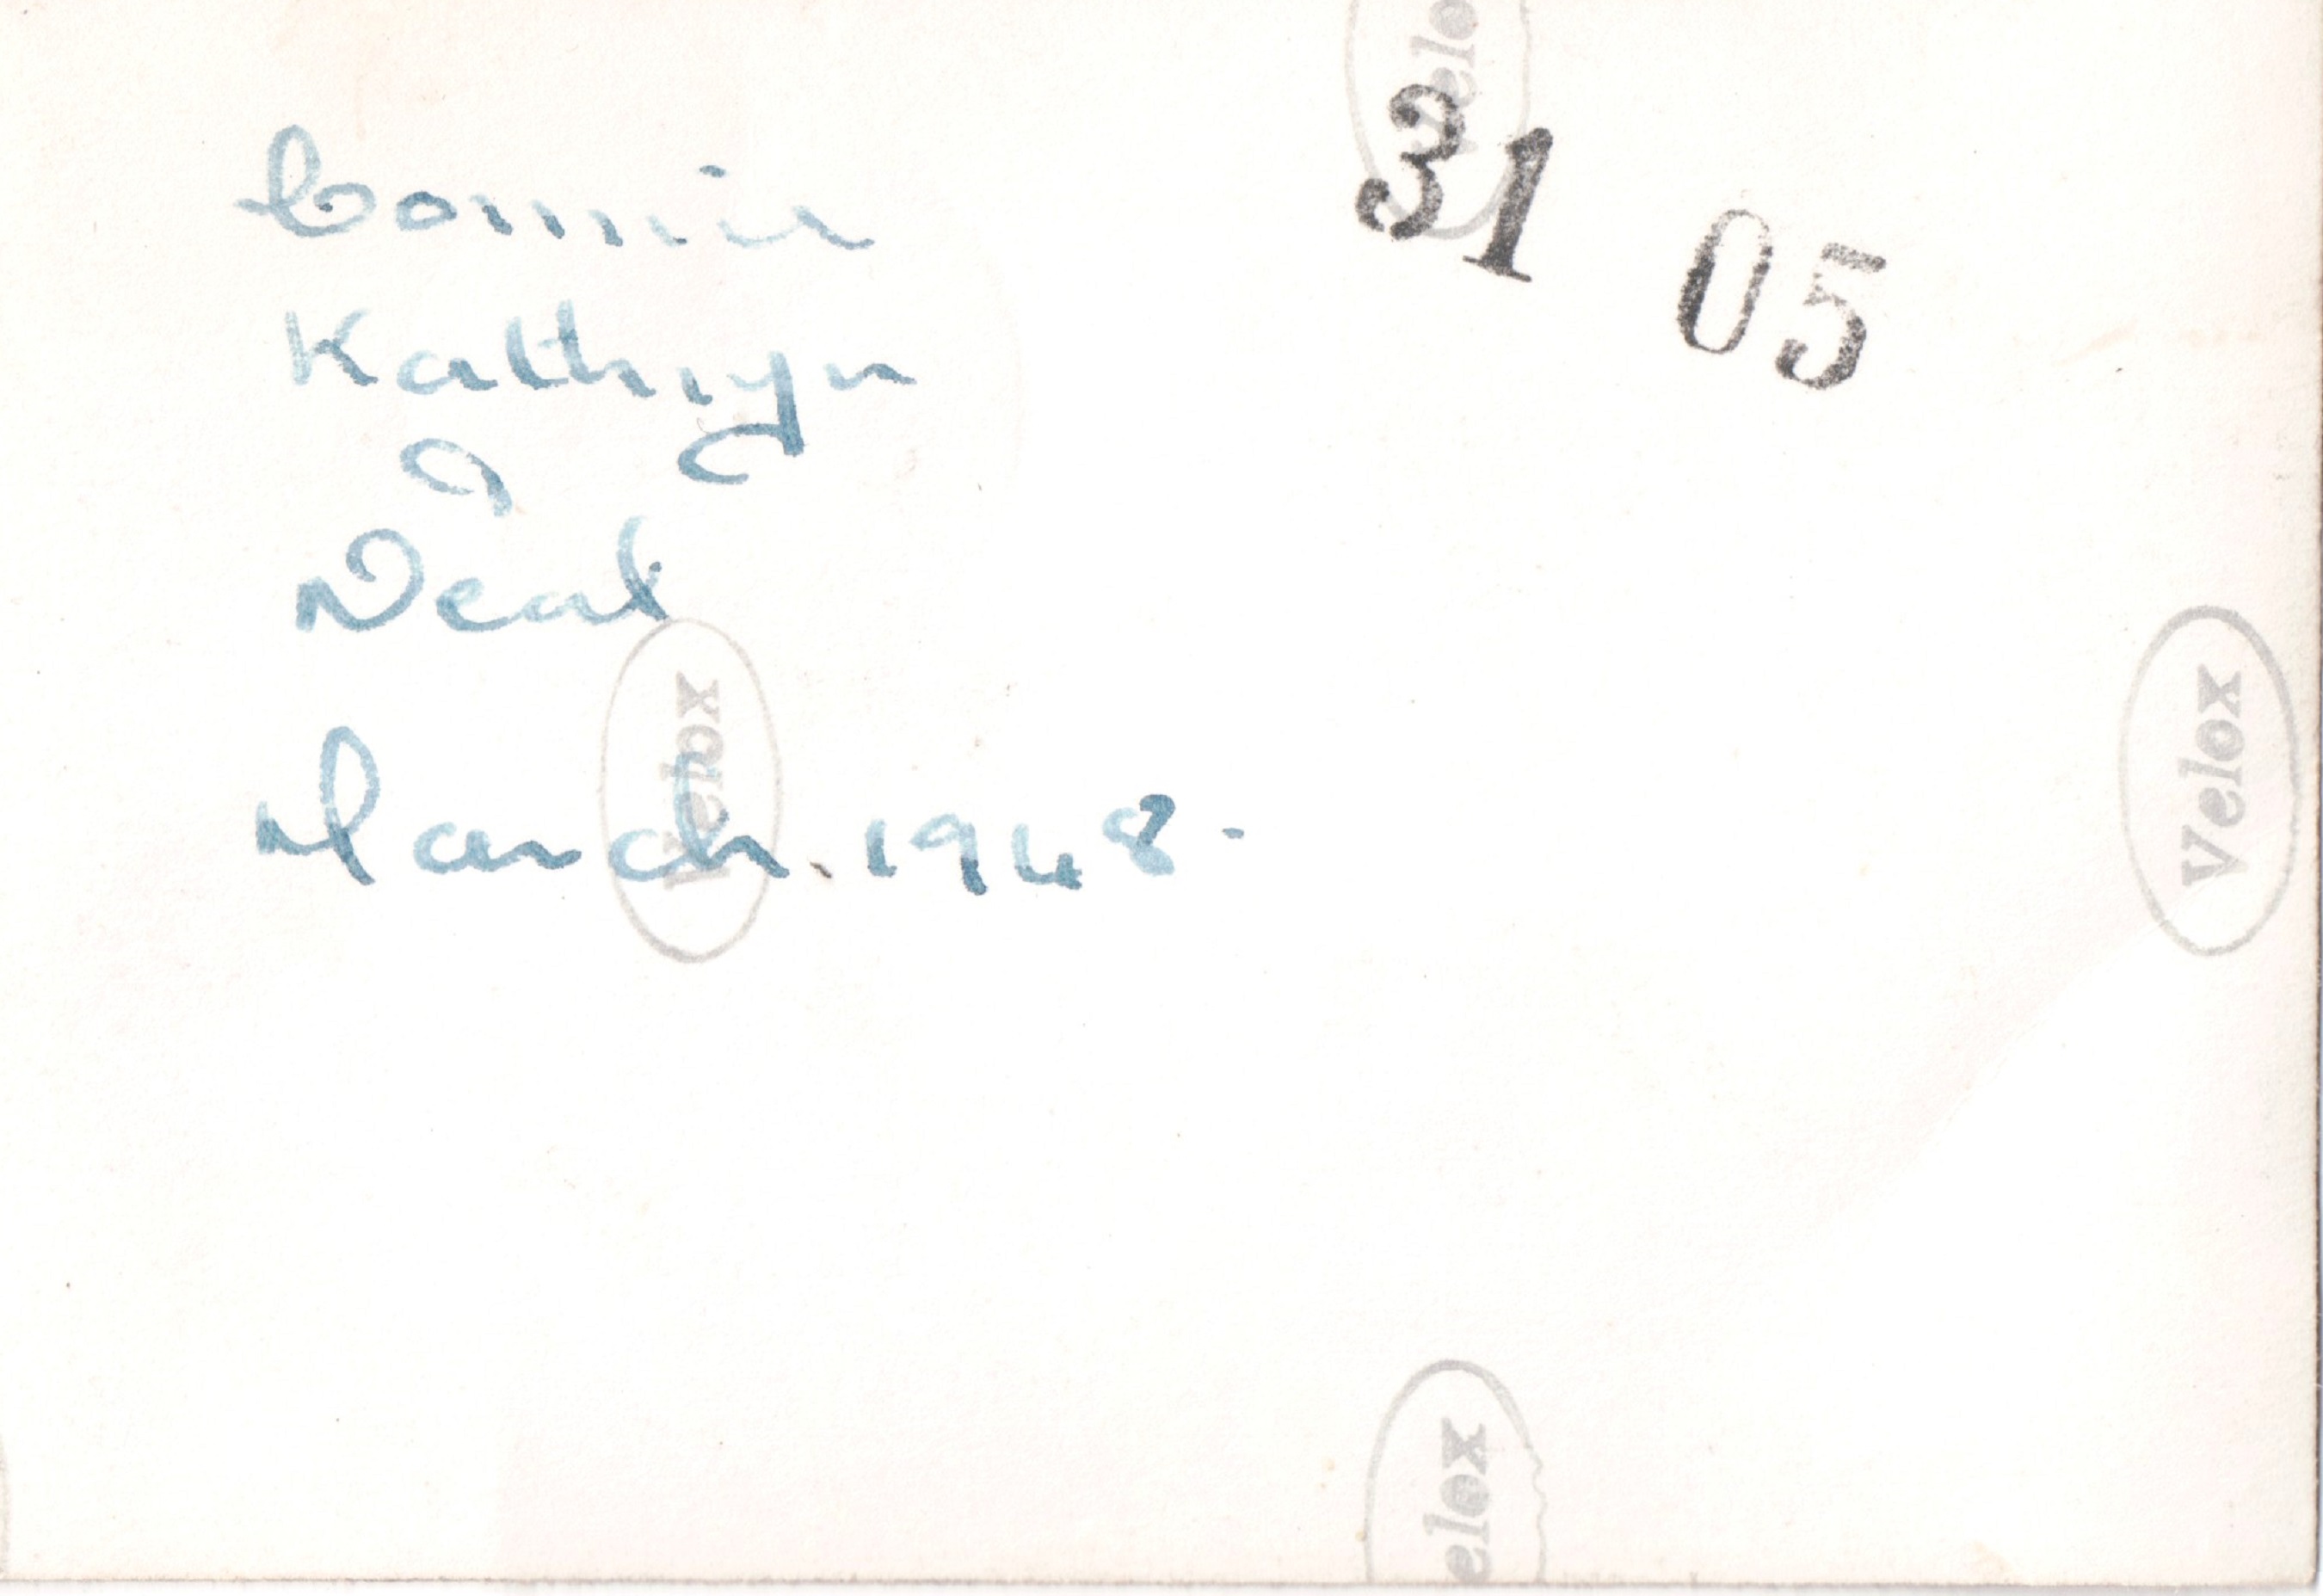 Connie
Kathryn
Deal
March. 1948-
31 05
Velox
Velox
Velox
elox